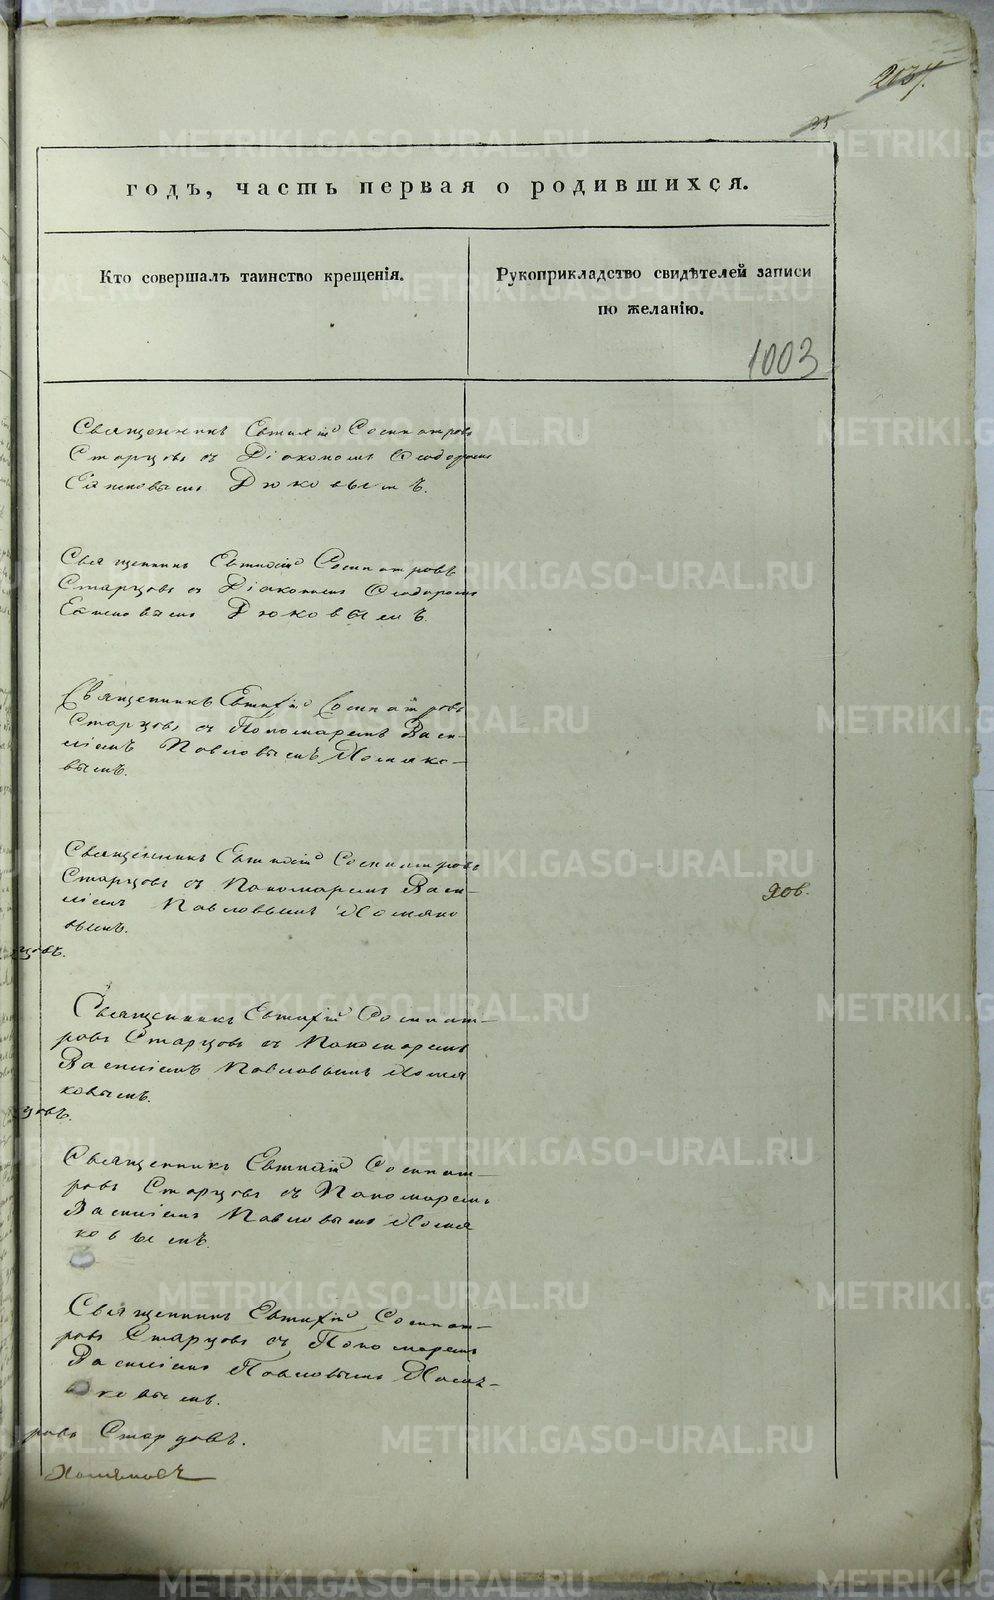 1003
годъ, часть первая о родившихся.
Кто совершалъ таинство крещенія.
Рукоприкладство свидѣтелей записи
по желанію.
Священникъ Евтихій Сосипатровъ
Старцовъ съ Діакономъ Ѳеодоромъ
Дюковымъ.
Священникъ Евтихій Сосипатровъ
Старцовъ съ Діакономъ Ѳеодоромъ
Дюковымъ.
Священникъ Евтихій Сосипатровъ
Старцовъ, съ Пономаремъ Васи-
ліемъ Павловымъ Хомяко-
вымъ.
Священникъ Евтихій Сосипатровъ
Старцовъ съ Пономаремъ Васи-
ліемъ Павловымъ Хомяко
вымъ.
Священникъ Евтихій Сосипат-
ровъ Старцовъ съ Пономаремъ
Василіемъ Павловымъ Хомя
ковымъ.
Священникъ Евтихій Сосипат-
ровъ Старцовъ съ Пономаремъ
Василіемъ Павловымъ Хомя
ковымъ.
Священникъ Евтихій Сосипат-
ровъ Старцовъ съ Пономаремъ
Василіемъ Павловымъ Хомя-
ковымъ.
ровъ Старцовъ.
Хомяковъ
METRIKI.GASO-URAL.RU